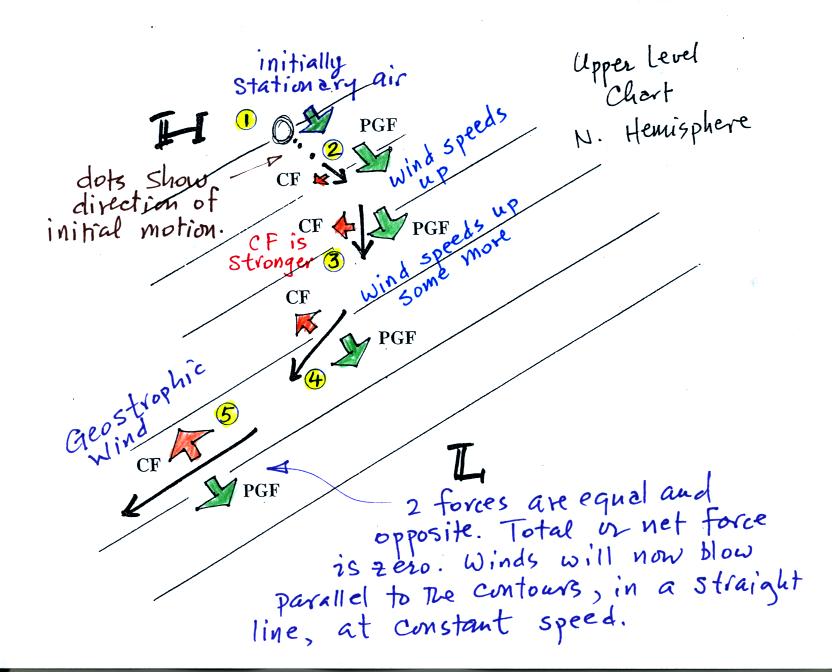 initially
stationary air
Upper Level
Chart
N. Hemisphere
H
1
PGF
2
dots show
direction of
initial motion.
CF
wind speeds
up
CF
PGF
CF is
stronger
3
wind speeds up
some more
CF
PGF
4
Geostrophic
Wind
5
CF
PGF
L
2 forces are equal and
opposite. Total or net force
is zero. Winds will now blow
parallel to the contours, in a straight
line, at constant speed.